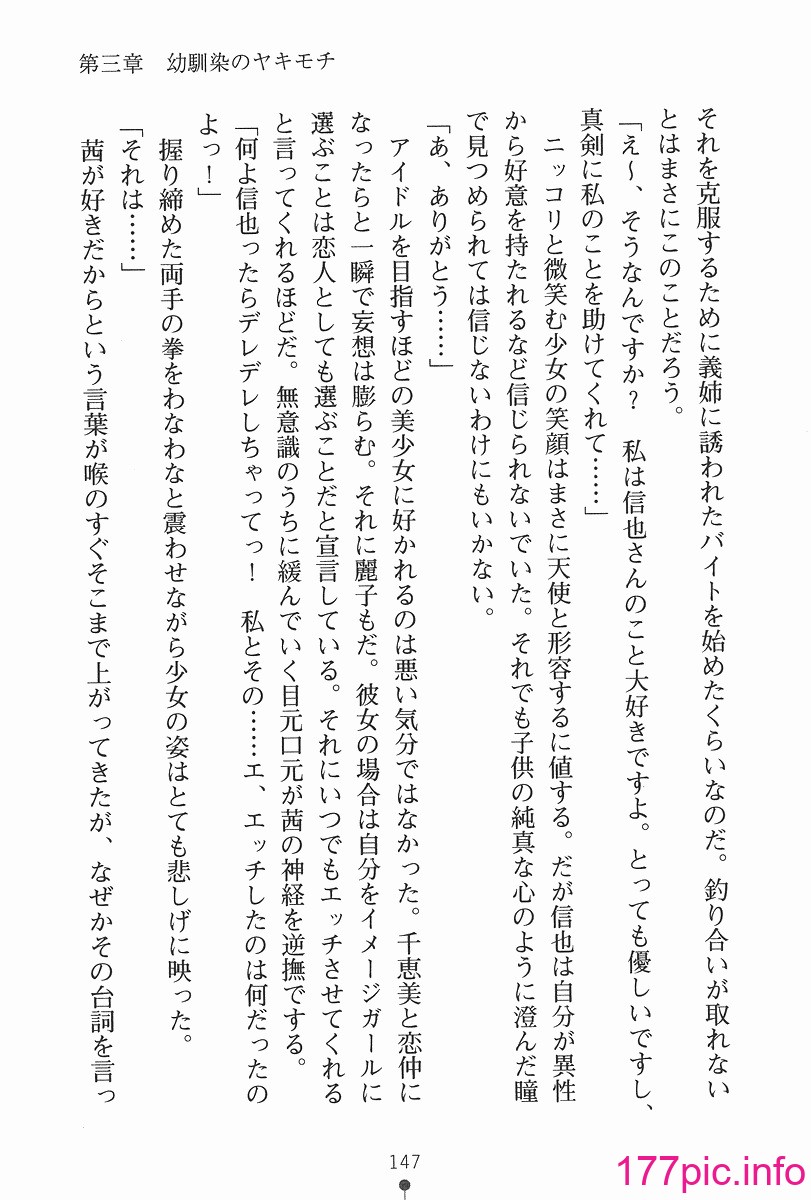 第三章　幼馴染のヤキモチ
それを克服するために義姉に誘われたバイトを始めたくらいなのだ。釣り合いが取れない
とはまさにこのことだろう。
「え〜、そうなんですか？　私は信也さんのこと大好きですよ。とっても優しいですし、
真剣に私のことを助けてくれて……」
ニッコリと微笑む少女の笑顔はまさに天使と形容するに値する。だが信也は自分が異性
から好意を持たれるなど信じられないでいた。それでも子供の純真な心のように澄んだ瞳
で見つめられては信じないわけにもいかない。
「あ、ありがとう……」
アイドルを目指すほどの美少女に好かれるのは悪い気分ではなかった。千恵美と恋仲に
なったらと一瞬で妄想は膨らむ。それに麗子もだ。彼女の場合は自分をイメージガールに
選ぶことは恋人としても選ぶことだと宣言している。それにいつでもエッチさせてくれる
と言ってくれるほどだ。無意識のうちに緩んでいく目元口元が茜の神経を逆撫でする。
「何よ信也ったらデレデレしちゃってっ！　私とその……エ、エッチしたのは何だったの
よっ！」
握り締めた両手の拳をわなわなと震わせながら少女の姿はとても悲しげに映った。
「それは……」
茜が好きだからという言葉が喉のすぐそこまで上がってきたが、なぜかその台詞を言っ
147
177pic.info